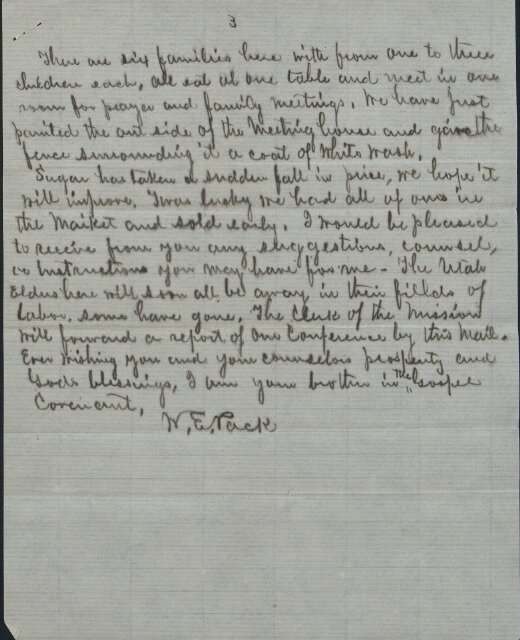 3
There are six families here with from one to three
children each, all eat at one table and meet in one
room for prayer and family meetings. We have just
painted the out side of the Meeting house and given the
fence surrounding it a coat of White wash.
Sugar has taken a sudden fall in price, we hope it
will improve, 'twas lucky we had all of ours in
the Market and sold early. I would be pleased
to receive from you any suggestions, counsel,
or Instructions you may have for me - The Utah
Elders here will soon all be away in their fields of
labor, some have gone. The Clerk of the Mission
will forward a report of our Conference by this Mail.
Ever wishing you and your counselors prosperity and
Gods blessings, I am your brother in the Gospel
Covenant,
W. E. Pack